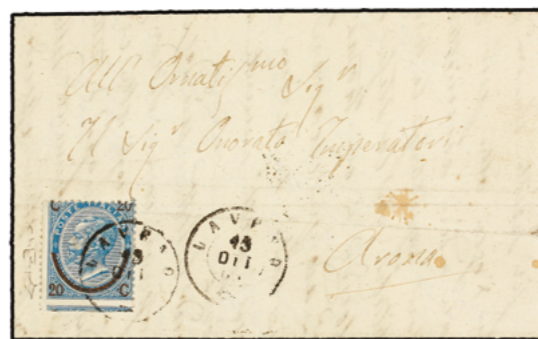 All' Ornatissmo Sigr
Il Sigr Onorato Imperatori
Arona
C 20
POSTE ITALIANE
20 C
LAVENO
13
OTT
LAVENO
13
OTT